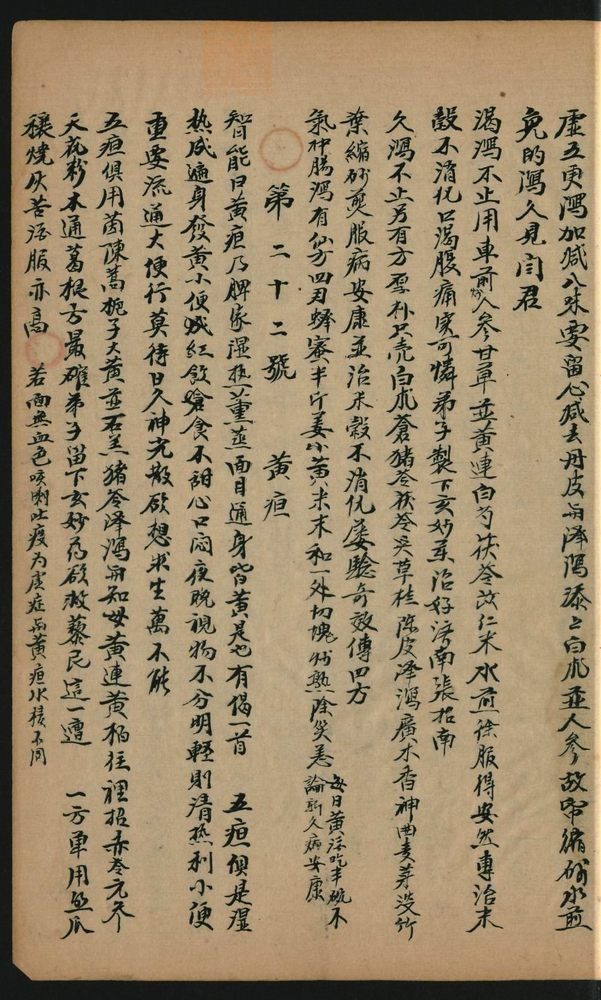 虛五更瀉加减八味要留心减去丹皮与澤瀉添上白朮並人參故帋縮砂水煎
免的瀉久見閻君
渴瀉不止用車前炒人參甘草並黃連白芍茯苓苡仁米水煎徐服得安然專治米
穀不消化口渴腹痛実可憐弟子製下玄妙葯治好濟南張招南
久瀉不止另有方厚朴只壳白朮蒼猪苓茯苓吳草桂陳皮澤瀉廣木香神曲麦芽淡竹
葉縮砂煎服病安康並治米穀不消化屡驗奇效傳四方
氣冲腸瀉有仙方四刄蜂蜜半斤姜小黃米末和一外切塊炒熟除災恙每日黃酒吃半碗不論新久病安康
第二十二號 黃疸
智能曰黃疸乃脾家濕热薰蒸面目遍身皆黃是也有偈一首 五疸俱是濕
热成遍身發黃小便紅飲食不甜心口闷夜晚視物不分明輕則清热利小便
重要疏通大便行莫待日久神光散欲想求生萬不能
五疸俱用茵陳蒿梔子大黃並石羔猪苓澤瀉与知母黃連黃柏往裡招赤苓元参
天花粉木通葛根方最確弟子留下玄妙葯欲救藜民這一遭 一方單用丝瓜
穰燒灰苦酒服亦高 若面無血色咳嗽吐痰为虚症与黃疸水積不同